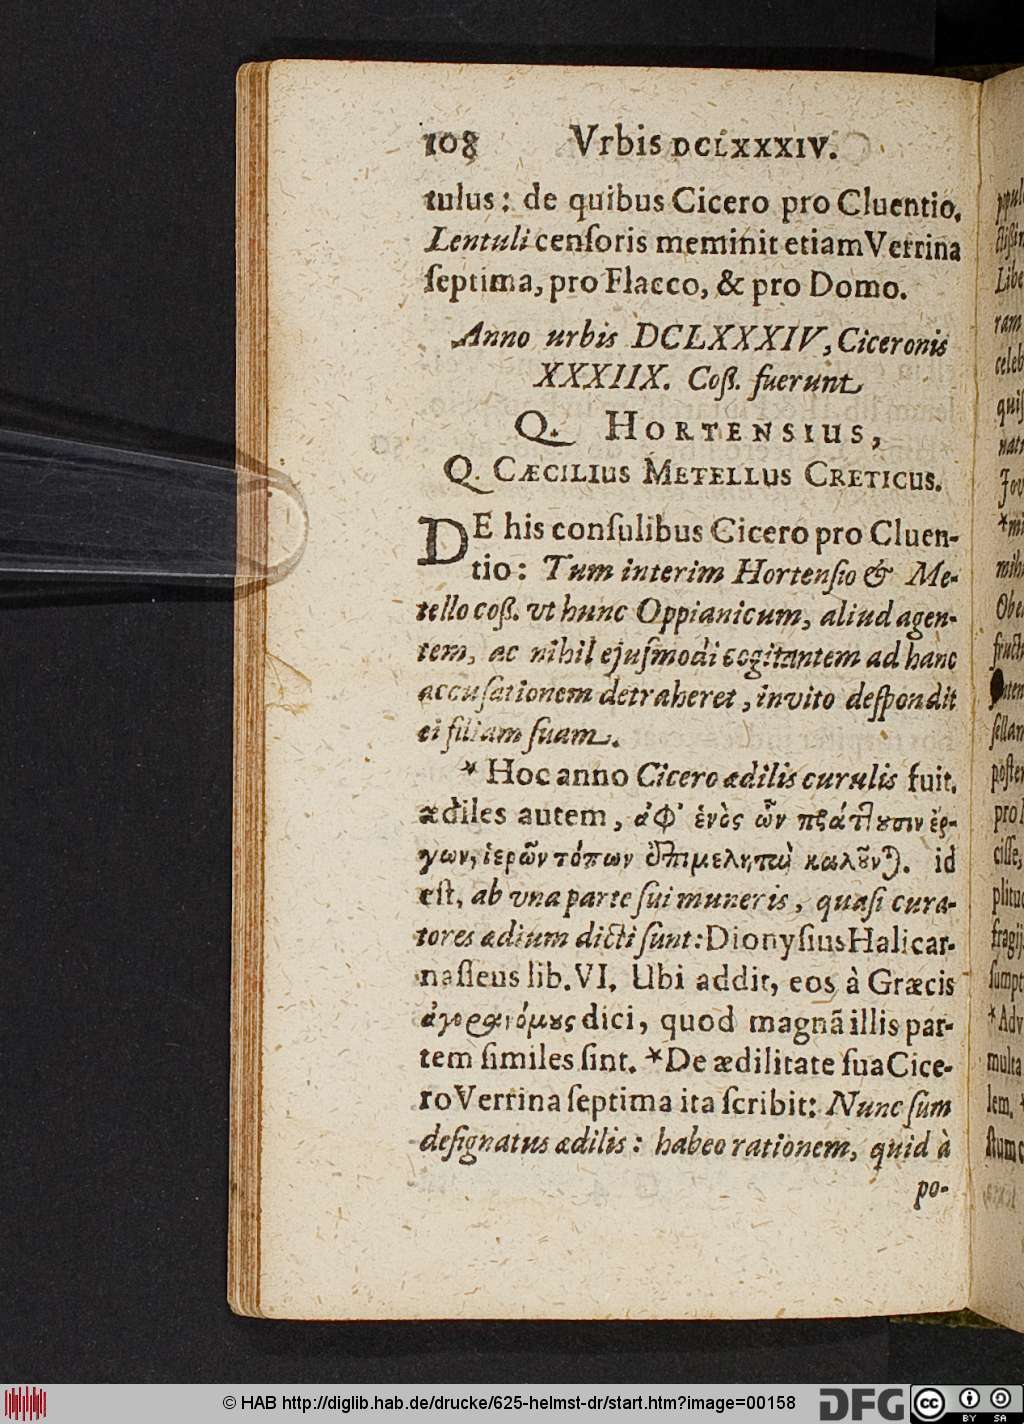 108 Vrbis DCLXXXIV.
tulus: de quibus Cicero pro Cluentio.
Lentuli cenſoris meminit etiam Verrina
ſeptima, pro Flacco, & pro Domo.
Anno urbis DCLXXXIV, Ciceronis
XXXIIX. Coſſ. fuerunt
Q. HORTENSIUS,
Q. CÆCILIUS METELLUS CRETICUS.
DE his conſulibus Cicero pro Cluen-
tio: Tum interim Hortenſio & Me-
tello coſſ. vt hunc Oppianicum, aliud agen-
tem, ac nihil ejuſmodi cogitantem ad hanc
accuſationem detraheret, invito deſpondit
ei filiam ſuam.
* Hoc anno Cicero ædilis curulis fuit.
ædiles autem, ἀφ' ἑνὸς ὧν πράττουσιν ἔρ-
γων, ἱερῶν τόπων ἐπιμεληταὶ καλοῦνται. id
eſt, ab vna parte ſui muneris, quaſi cura-
tores ædium dicti ſunt: Dionyſius Halicar-
naſſeus lib. VI. Ubi addit, eos à Græcis
ἀγορανόμους dici, quod magnã illis par-
tem ſimiles ſint. * De ædilitate ſua Cice-
ro Verrina ſeptima ita ſcribit: Nunc ſum
deſignatus ædilis: habeo rationem, quid à
po-
© HAB http://diglib.hab.de/drucke/625-helmst-dr/start.htm?image=00158
DFG
cc BY SA